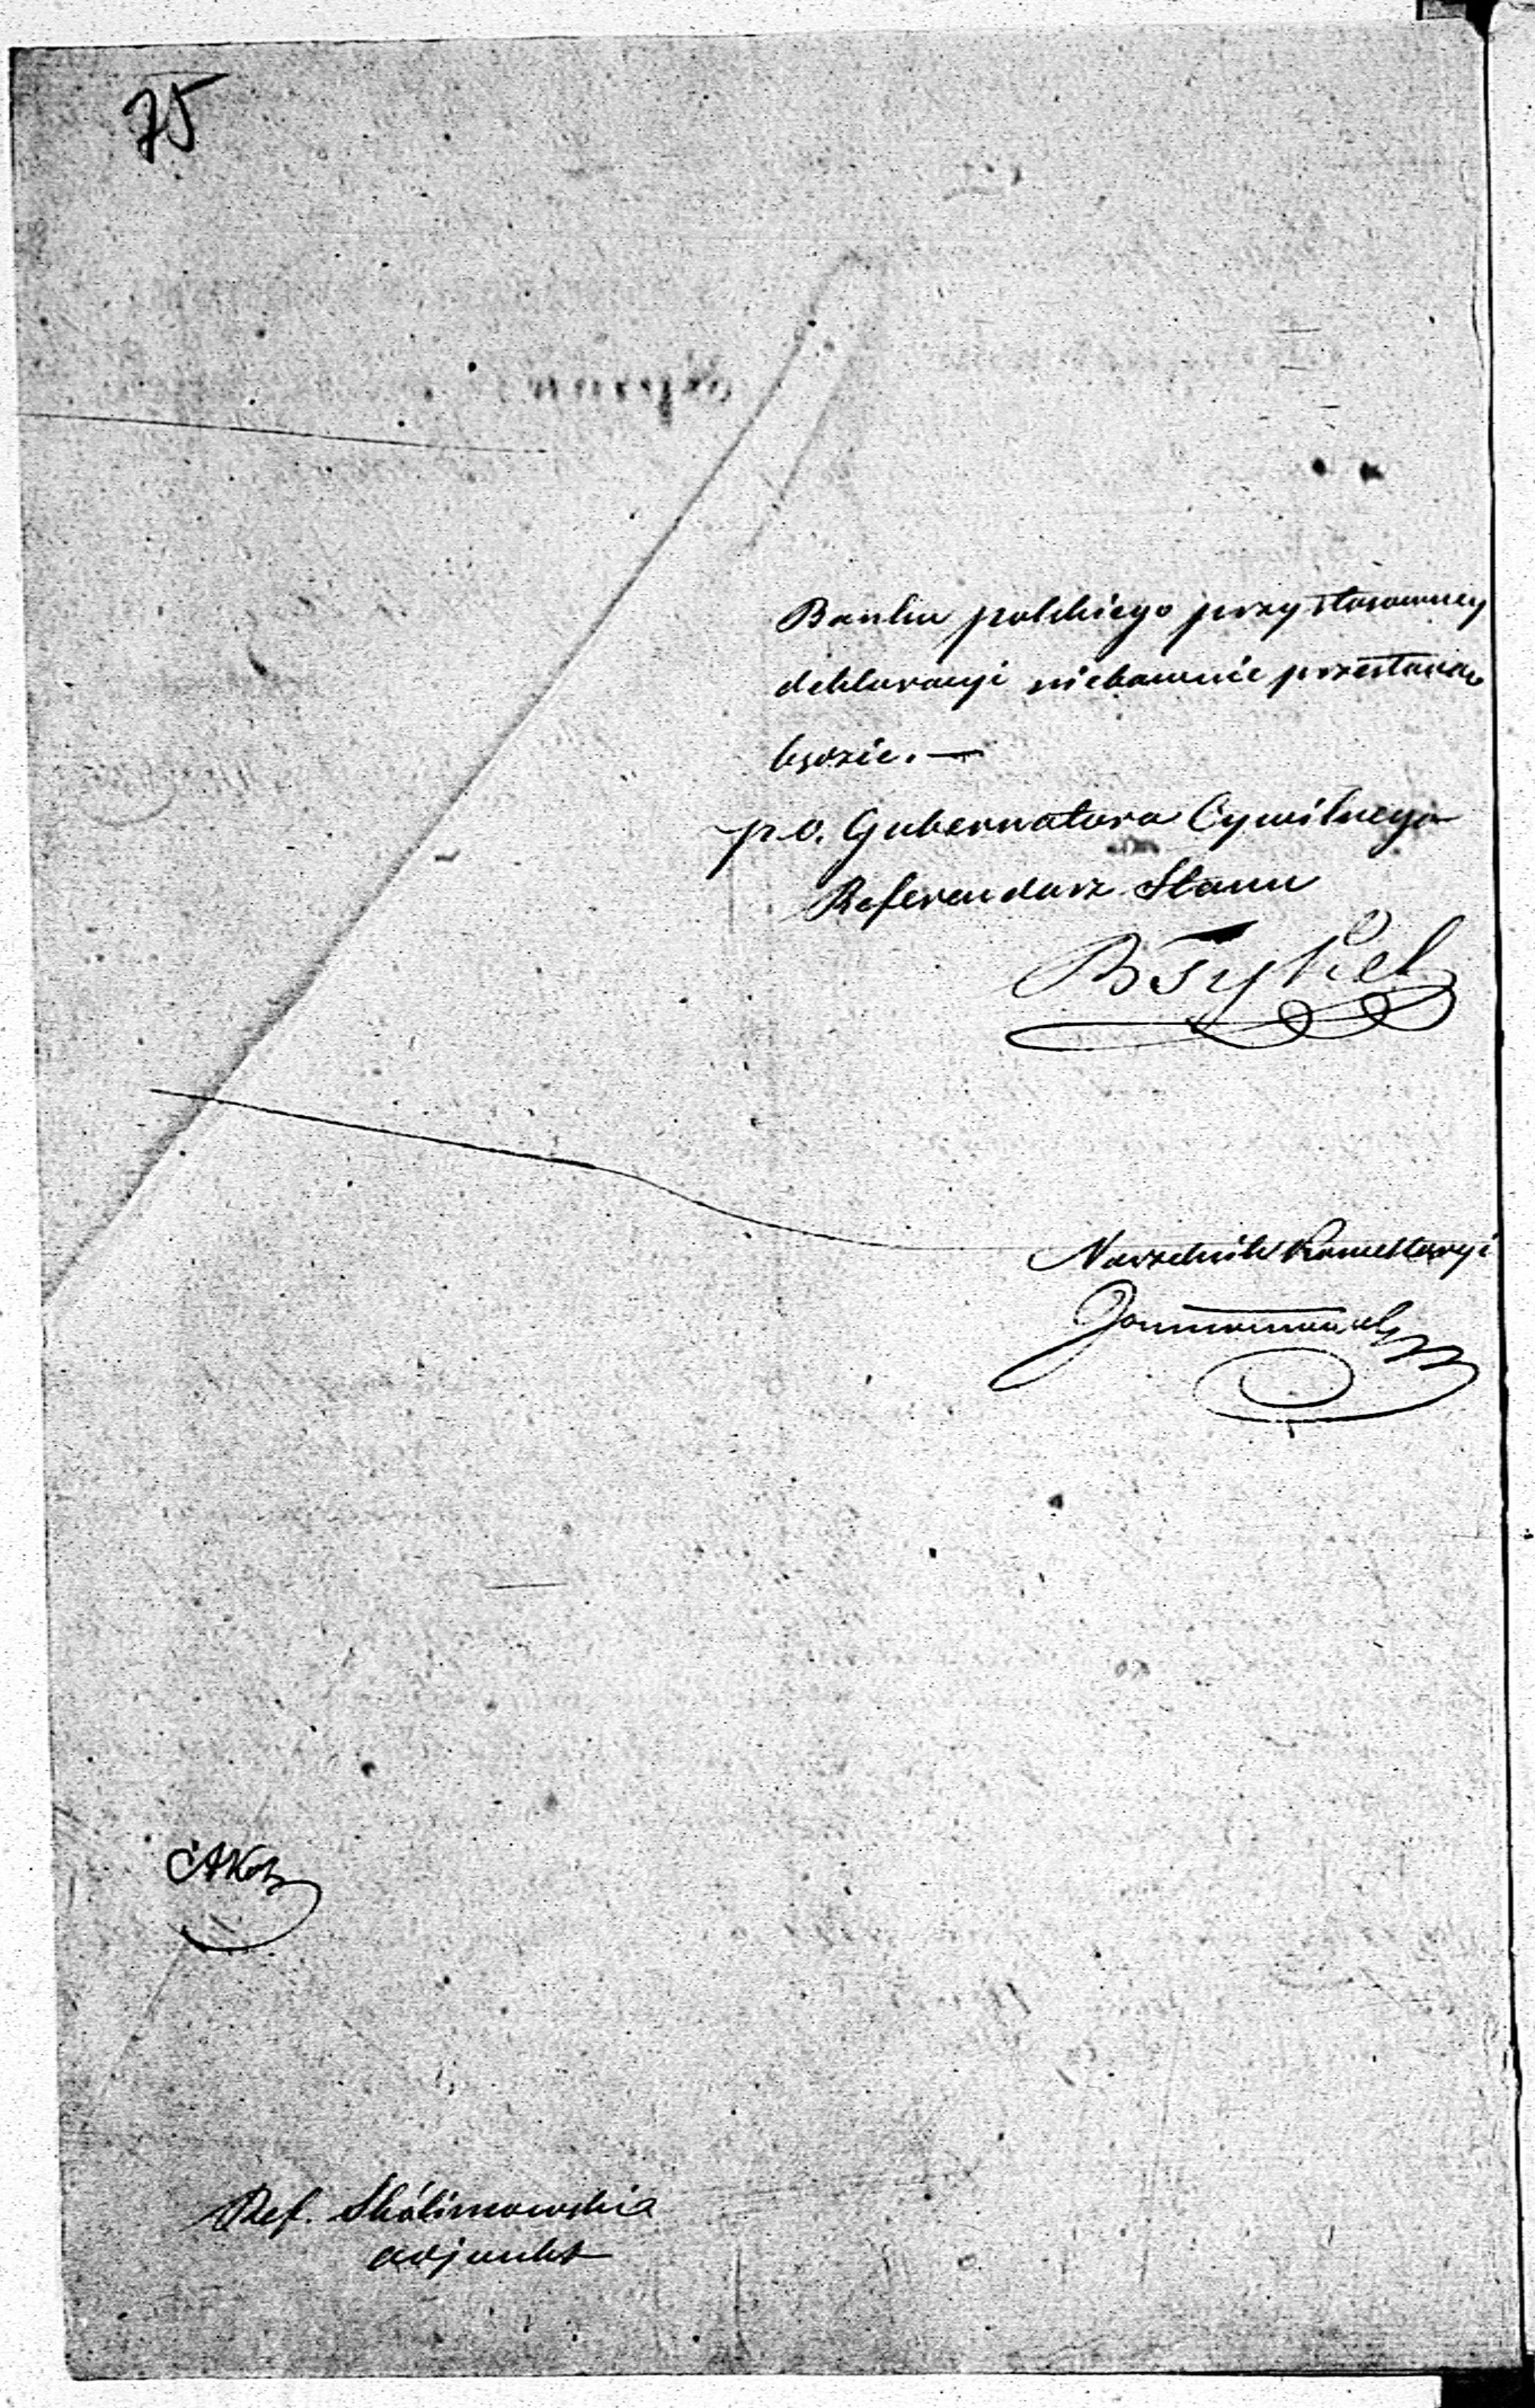 75
Banku polskiego przy stosowney
deklaracyi niebawnie przesłana
będzie. —
p. o. Gubernatora Cywilnego
Referendarz Stanu
BTykel
Naczelnik Kancellaryi
Ref. Skolimowski
adjunkt